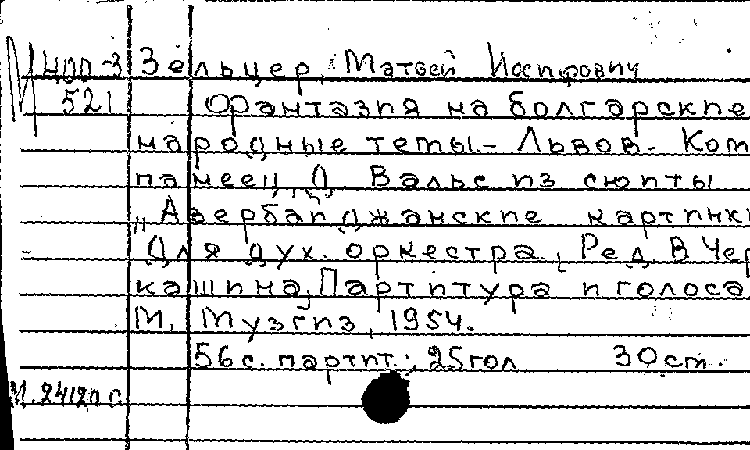 М 400-3 Зельцер, Матвей Иосифович
521 Фантазия на болгарские
народные темы.- Львов-Ком
панеец, Д. Вальс из сюиты
„Азербайджанские картинки
Для дух. оркестра, Ред. В. Чер
кашина, Партитура и голоса
М., Музгиз, 1954.
56 с. партит.; 25 гол 30 см.
М. 24120 г.